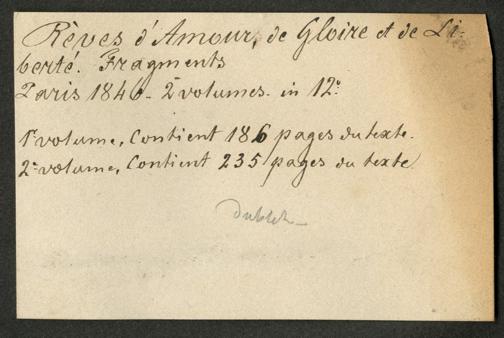 Rèves d'Amour, de Gloire et de Li-
berté. Fragments
Paris 1846 - 2 volumes - in 12°
1r volume, Contient 186 pages du texte.
2e volume, Contient 235 pages du texte